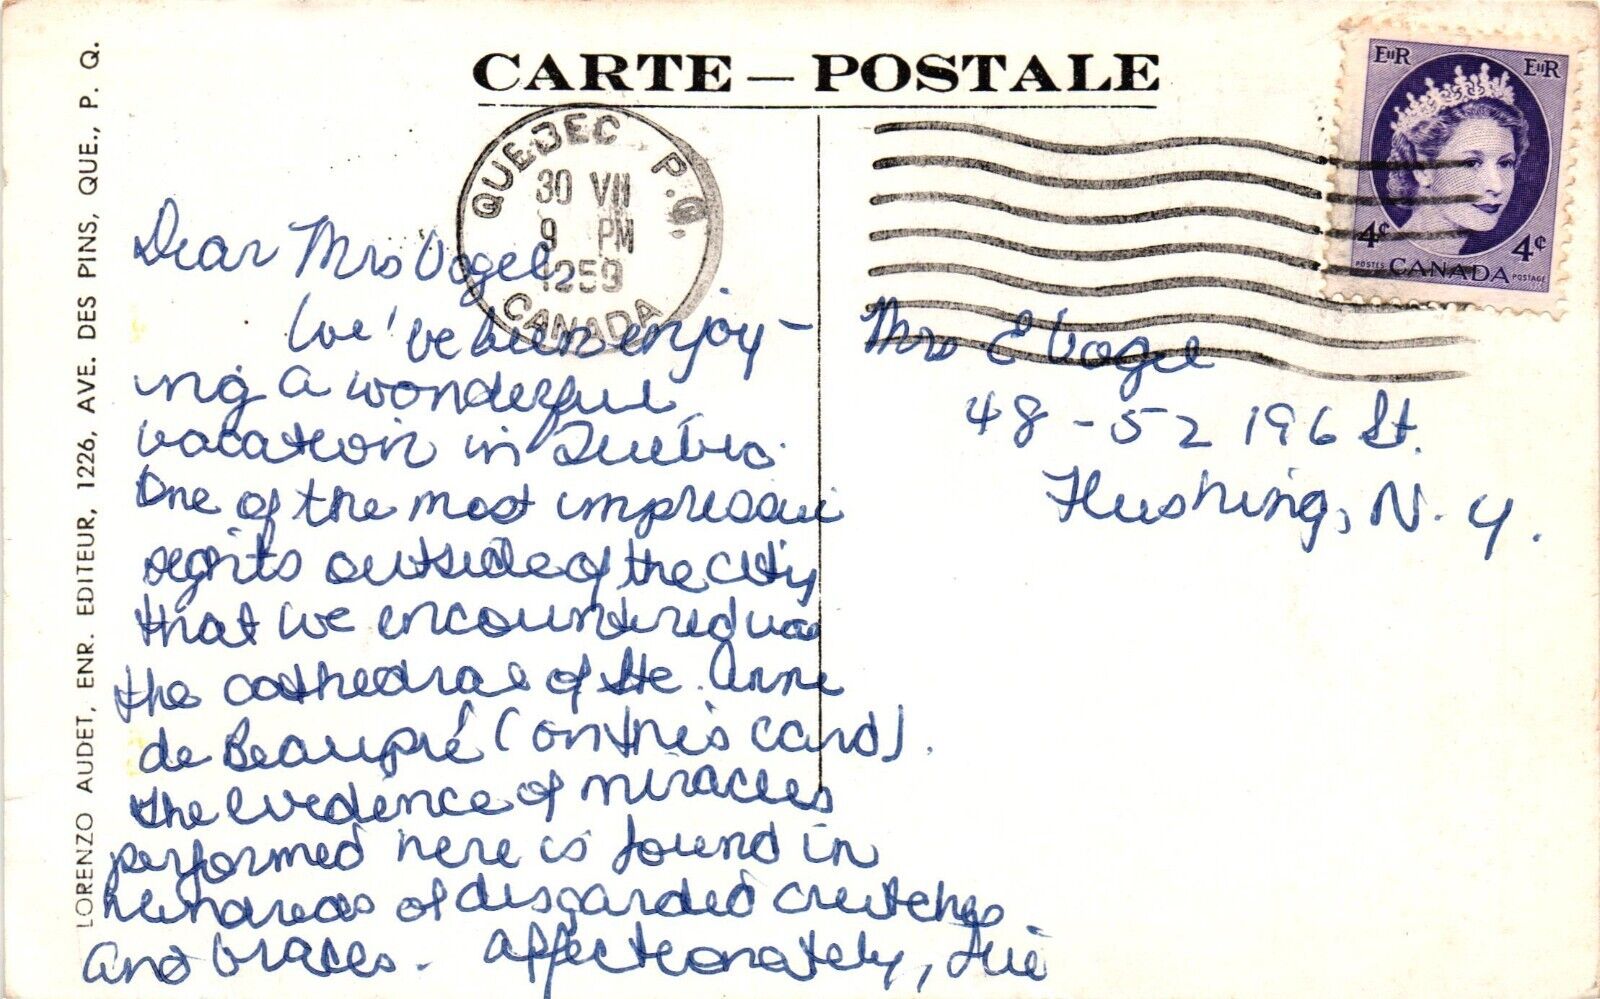 CARTE – POSTALE
QUEBEC P.Q.
30 VII
9 PM
1959
CANADA
EIIR EIIR
4¢ 4¢
POSTES CANADA POSTAGE
LORENZO AUDET, ENR. EDITEUR, 1226, AVE. DES PINS, QUE., P. Q.
Dear Mrs Vogel
We've been enjoy-
ing a wonderful
vacation in Quebec.
One of the most impressive
sights outside of the city
that we encountered was
the cathedral of Ste. Anne
de Beaupré (on this card).
The evidence of miracles
performed here is found in
hundreds of disgarded crutches
and braces. Affectionately,
Mrs E Vogel
48-52 196 St.
Flushing, N.Y.